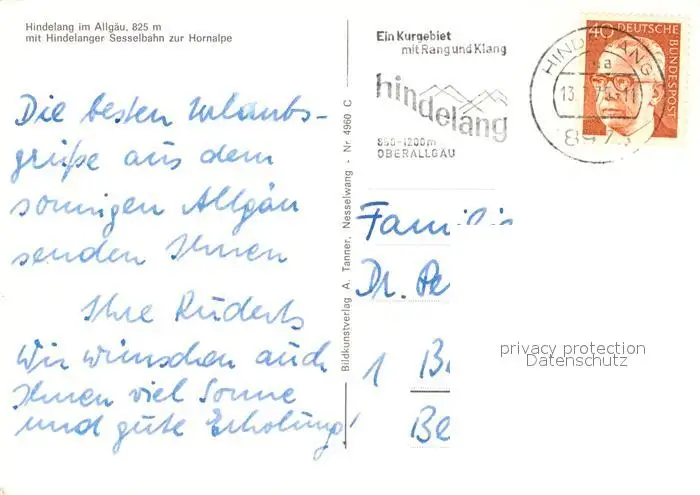 Hindelang im Allgäu, 825 m
mit Hindelanger Sesselbahn zur Hornalpe
Die besten Urlaubs-
grüße aus dem
sonnigen Allgäu
senden Ihnen
Ihre Ruderts
Wir wünschen auch
Ihnen viel Sonne
und gute Erholung!
Bildkunstverlag A. Tanner, Nesselwang - Nr 4960 C
Ein Kurgebiet
mit Rang und Klang
hindelang
850-1200m
OBERALLGÄU
HINDELANG
a
13.
897
40 DEUTSCHE BUNDESPOST
Familie
Dr. Pe
1 B
Be
privacy protection
Datenschutz